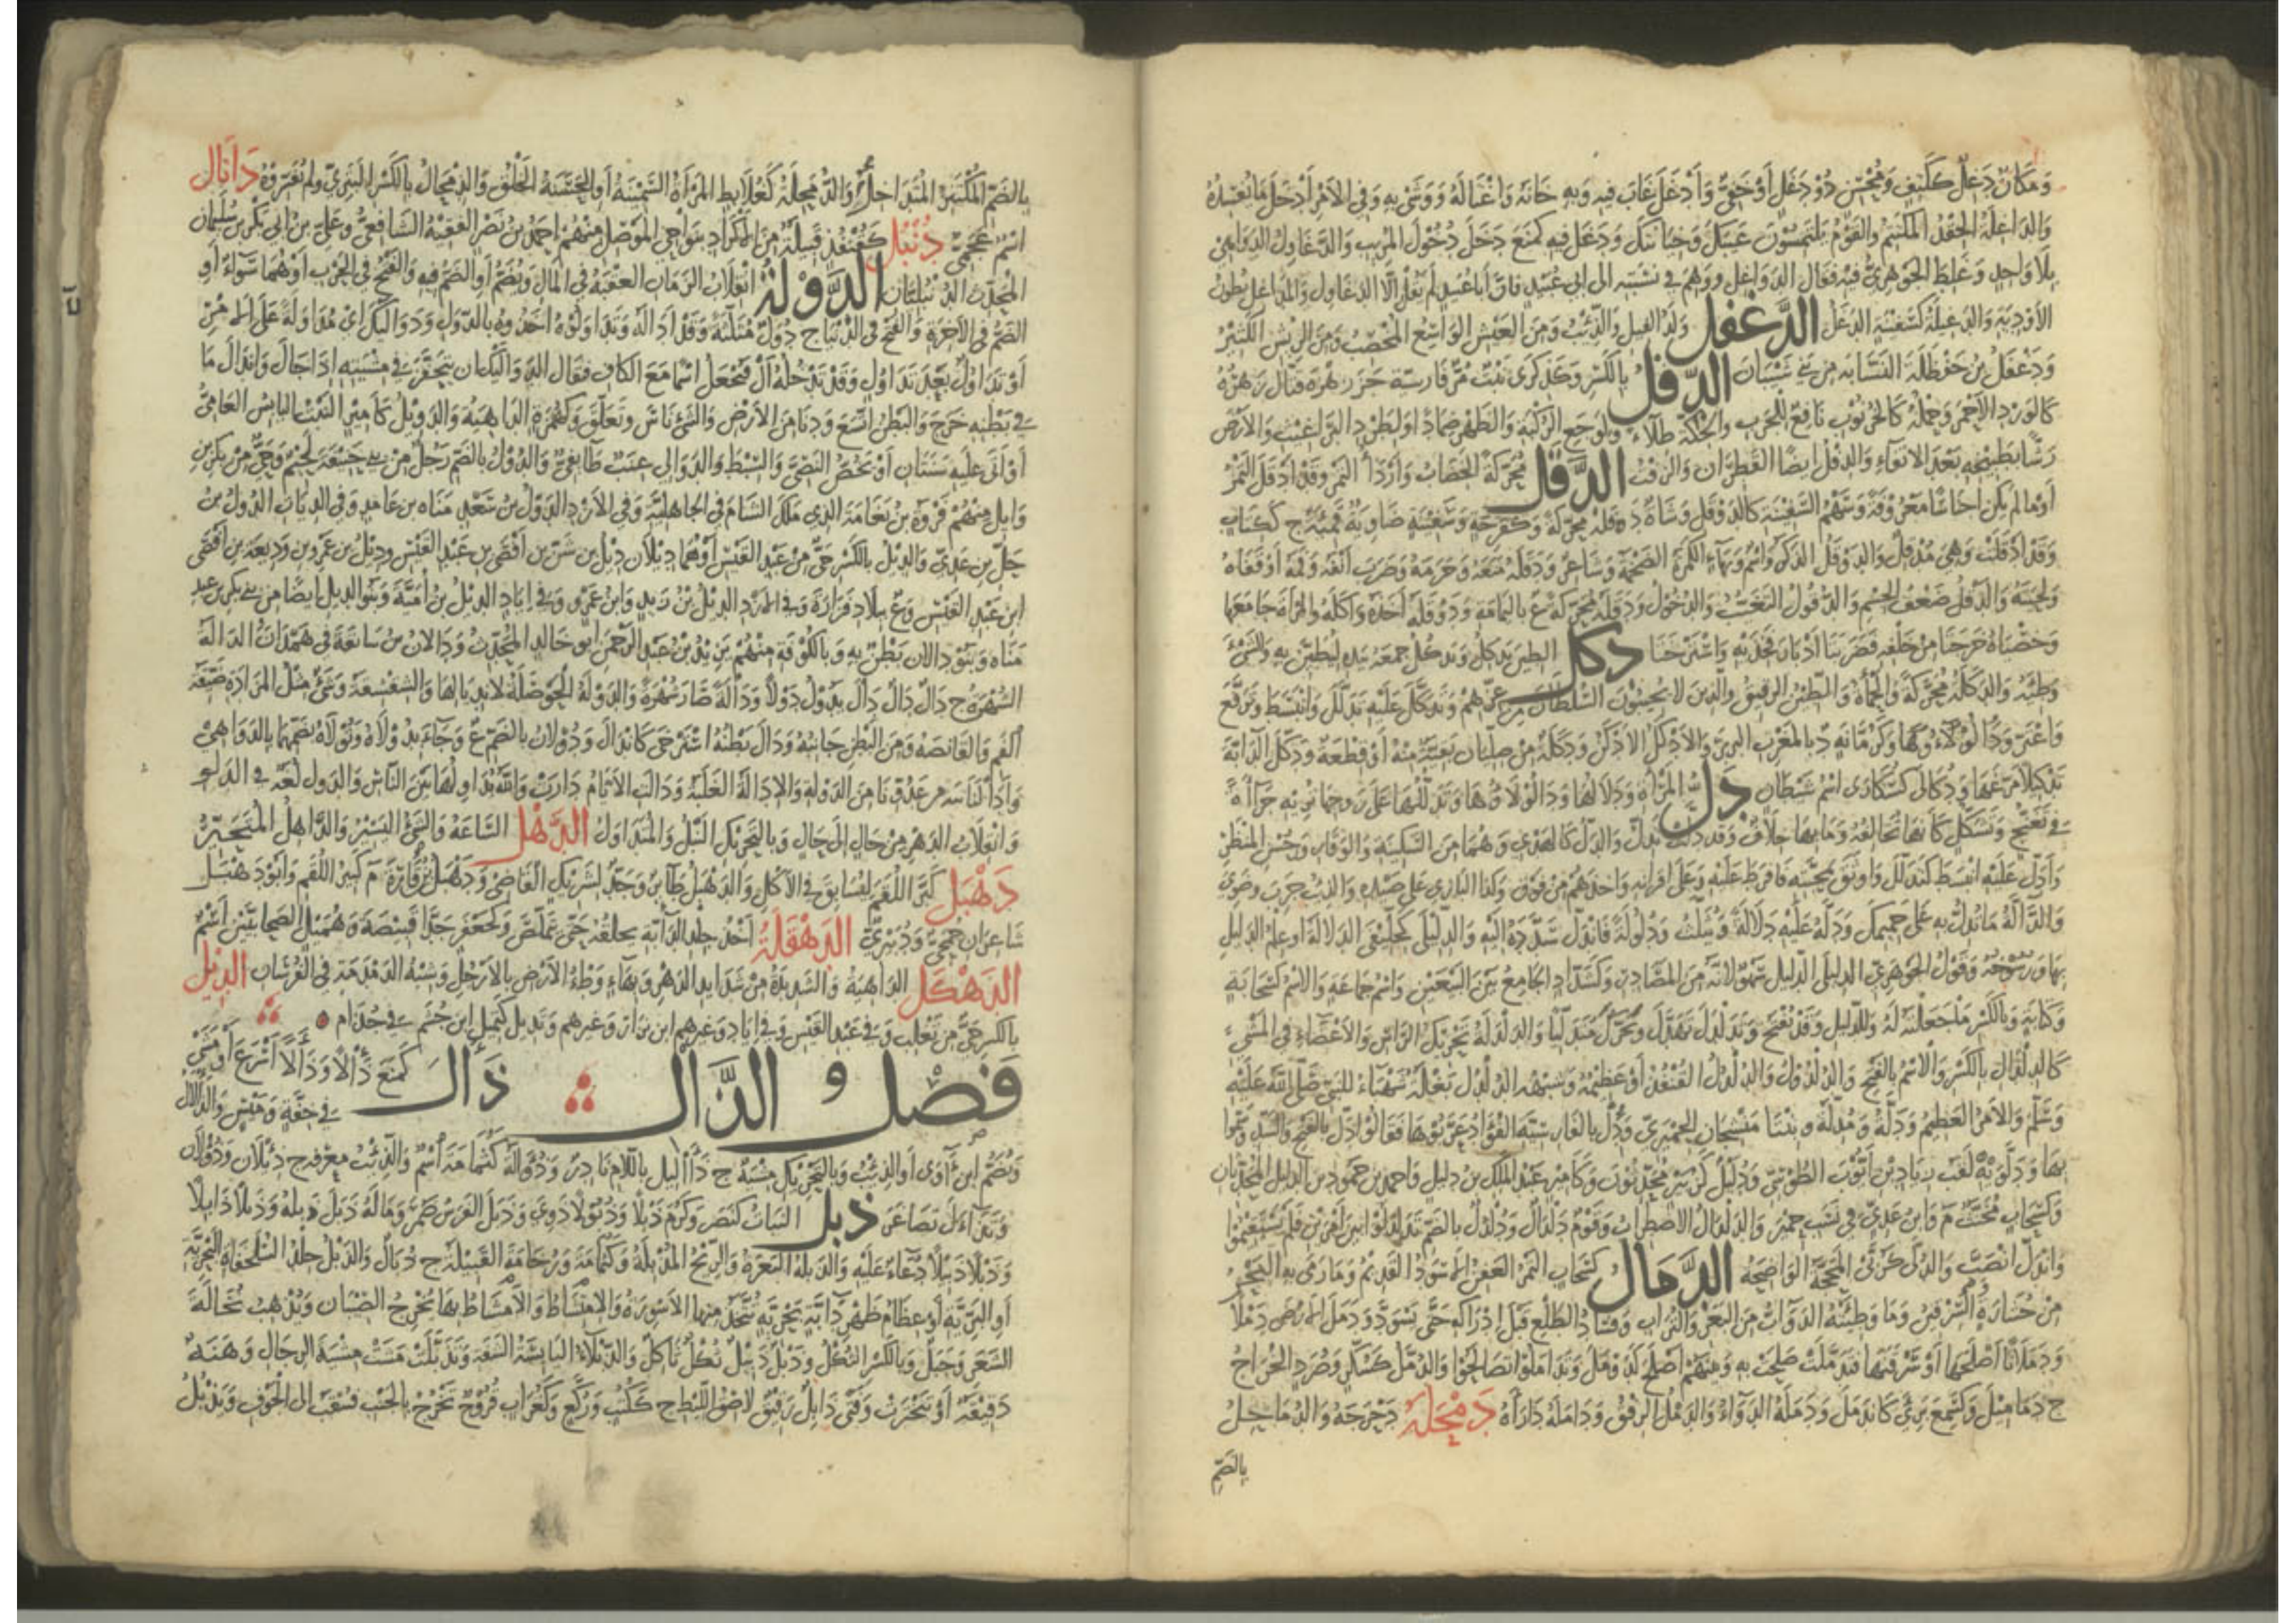 ومكان دغل ككتف ومحسن ذو دغل أو خفي وأدغل غاب فيه وبه خانه واغتاله ووشى به وفي الأمر أدخل ما يفسده
والداغلة الحقد المكتتم والقوم يلتمسون عيبك وخيانتك ودغل فيه كمنع دخل دخول المريب والدغاول الدواهي
بلا واحد وغلط الجوهري فيه فقال الدواغل ووهم في نسبته إلى أبي عبيد فإن أبا عبيد لم يقل إلا الدغاول والمداغل بطون
الأودية والدغيلة كسفينة الدغل الدغفل ولد الفيل والذئب ومن العيش الواسع المخصب ومن الريش الكثير
ودغفل بن حنظلة النسابة من بني شيبان الدفل بالكسر وكذكرى نبت مر فارسية خرزهره قتال زهره
كالورد الأحمر وحمله كالخرنوب نافع للجرب والحكة طلاء ولوجع الركبة والظهر ضمادا ولطرد البراغيث والأرض
رشا بطبيخه بعد الانقاء والدفل أيضا القطران والزفت الدقل محركة الخضاب وأردأ التمر وقد أدقل التمر
أو ما لم يكن أجناسا معروفة وسهم السفينة كالدوقل وشاة دقلة محركة وكفرحة وسفينة ضاوية قميئة ج ككتاب
وقد أدقلت وهي مدقل والدوقل الذكر واسم وبهاء الكمرة الضخمة وشاعر ودقله منعه وحرمه وضرب أنفه وفمه أو قفاه
ولحييه والدقل ضعف الجسم والدقول التغيب والدخول ودقلة محركة ع باليمامة ودوقله أخذه وأكله والمرأة جامعها
وخصياه خرجتا من خلفه فضربتا أدبار فخذيه واسترختا دكل الطين يدكل ويدكل جمعه بيده ليطين به والشيء
وطئه والدكلة محركة والحمأة والطين الرقيق والذين لا يجيبون السلطان من عزهم وتدكل عليه تدلل وانبسط وترفع
واعتز ودكالة وكرمانة د بالمغرب البربر والأدكل الأدكن ودكلة من صليان بقية منه أو قطعة ودكل الدابة
تدكيلا مرغها ودكالى كسكارى اسم شيطان دل المرأة ودلالها ودالولاؤها وتدللها على زوجها تريه جراءة
في تغنج وتشكل كأنها تخالفه وما بها خلاف وقد دلت تدل والدل كالهدي وهما من السكينة والوقار وحسن المنظر
وأدل عليه انبسط كتدلل وأوثق بمحبته فأفرط عليه وعلى أقرانه وأخذهم من فوق وكذا البازي على صيده والذئب جرب وضوي
والدالة ما تدل به على حميمك ودله عليه دلالة ويثلث ودلولة فاندل سدده إليه والدليلى كخليفى الدلالة أو علم الدليل
بها ورسوخه وقول الجوهري الدليلى الدليل سهو لأنه من المصادر وكشداد الجامع بين البيعين واسم جماعة والاسم كسحابة
وكتابة وبالكسر ما جعلته له وللدليل وقد تفتح وتدلدل تهدل وتحرك متدليا والدلدلة تحريك الرأس والأعضاء في المشي
كالدلدال بالكسر والاسم بالفتح والدلدول والدلدل القنفذ أو عظيمه وشبهه الدلدل بغلة شهباء للنبي صلى الله عليه
وسلم والأمر العظيم ودلة ومدلة بنتا منشجان الحميري ودل بالفارسية الفؤاد عربوها فقالوا دل بالفتح والتشديد وسموا
بها ودلويه لقب زياد بن أيوب الطوسي ودليل كزبير محدثون وكأمير عبد الملك بن دليل وأحمد بن حمود بن الدليل المحدثان
وكسحاب مخنث م وابن عدي في نسب حمير والدلدال الاضطراب وقوم دلدال ودلدل بالضم تدلدلوا بين أمرين فلم يستقيموا
واندل انصب والدلى كربى المحجة الواضحة الدمال كسحاب التمر العفن الأسود القديم وما رمى به البحر
من خشارة والسرقين وما وطئته الدواب من البعر والتراب وفساد الطلع قبل إدراكه حتى يسود ودمل الأرض دملا
ودملانا أصلحها أو سرقنها فتدملت صلحت به وبينهم أصلح كدومل وتداملوا تصالحوا والدمل كسكر وصرد الخراج
ج دماميل وكسمع برئ كاندمل ودمله الدواء والدمل الرفق ودامله داراه دمحله دحرجه والدماحل
بالضم
بالضم المكتنز المتداخل والدمحلة كعلابط المرأة السمينة أو الحسنة الخلق والدمحال بالكسر البتري ولم تفسروه دانال
اسم عجمي دنبل كقنفذ قبيلة من الأكراد بنواحي الموصل منهم أحمد بن نصر الفقيه الشافعي وعلي بن أبي بكر بن سليمان
المحدث الدنبليان الدولة انقلاب الزمان العقبة في المال ويضم أو الضم فيه والفتح في الحرب أو هما سواء أو
الضم في الآخرة والفتح في الدنيا ج دول مثلثة وقد أداله وتداولوه أخذوه بالدول ودواليك أي مداولة على الأمر
أو تداول بعد تداول وقد تدخله أل فيجعل اسما مع الكاف فيقال الدواليك أن يتحفز في مشيته إذا جال واندال ما
في بطنه خرج والبطن اتسع ودنا من الأرض والشيء ناس وتعلق وكهمزة الداهية والدويل كأمير النبت اليابس العامي
أو أتى عليه سنتان أو يخص النصي والسبط والدوالي عنب طائفي والدول بالضم رجل من بني حنيفة بن لجيم وحي من بكر بن
وايل منهم فروة بن نعامة الذي ملك الشام في الجاهلية وفي الأزد الدول بن سعد مناة بن غامد وفي الرباب الدول بن
جل بن عدي والديل بالكسر حي من عبد القيس أو هما ديلان ديل بن شن بن أفصى بن عبد القيس وديل بن عمرو بن وديعة بن أفصى
ابن عبد القيس وع ببلاد فزارة وفي الأزد الديل بن زيد وابن عمرو وفي إياد الديل بن أمية وبنو الديل أيضا من بني بكر بن عبد
مناة وبنو دالان بطن به وبالكوفة منهم يزيد بن عبد الرحمن أبو خالد المحدث ودالان بن سابقة في همدان الدالة
الشهرة ج دال دال دال يدول دولا ودالة صار شهرة والدولة الحوصلة لاندیالها والشقشقة وشيء مثل المزادة ضيقة
الفم والقانصة ومن البطن جانبه ودال بطنه استرخى كاندال ودولان بالضم ع وجاء بدولاه وتولاه بضمهما بالدواهي
وأدالنا الله من عدونا من الدولة والإدالة الغلبة ودالت الأيام دارت والله يداولها بين الناس والدول لغة في الدلو
وانقلاب الدهر من حال إلى حال وبالتحريك النبل والمتداول الدهل الساعة والشيء اليسير والداهل المتحير
دهبل كبر اللقم ليسابق في الأكل والدهبل طائر وجد لشريك القاضي ودهبل بن قارة م كبير اللقم وأبو دهبل
شاعران جمحي ودبيري الدهقلة أخذ جلد الدابة يحلقه حتى يملص وكجعفر جد لقبيصة وهميل الصحابيين أسلم
الدهكل الداهية والشديدة من شدائد الدهر وبهاء وطء الأرض بالأرجل وشبه الدمدمة في الفرسان الديل
بالكسر حي من تغلب وفي عبد القيس وفي إياد وغيرهم ابن بزان وغيرهم وتديل كتميل ابن جشم في جذام
فصل الذال ذأل كمنع ذألا وذألانا أسرع أو مشى
في خفة وميس والذألان
ويضم ابن آوى أو الذئب وبالتحريك مشيه ج ذآليل باللام نادر وذؤالة كثمامة اسم والذئب معرفة ج ذئلان وذؤلان
وتذاءل تصاغر ذبل النبات كنصر وكرم ذبلا وذبولا ذوي وذبل الفرس ضمر وماله ذبل ذبله وذبلا ذابلا
وذبلا ذبيلا دعاء عليه والذبلة البعرة والريح المذبلة وكثمامة ورخامة الفتيلة ج ذبال والذبل جلد السلحفاة البحرية
أو البرية أو عظام ظهر دابة بحرية تتخذ منها الأسورة والإمشاط والأمشاط بها تخرج الصئبان وتذهب نخالة
الشعر وجبل وبالكسر الثكل وذبل ذبيل ثكل ثاكل والذبلاء اليابسة الشفة وتذبلت مشت مشية الرجال وهي
دقيقة أو تبخترت وقنى ذابل رقيق لاصق الليط ج ككتب وركع وكغراب قروح تخرج بالجنب فتنقب إلى الجوف ويذبل